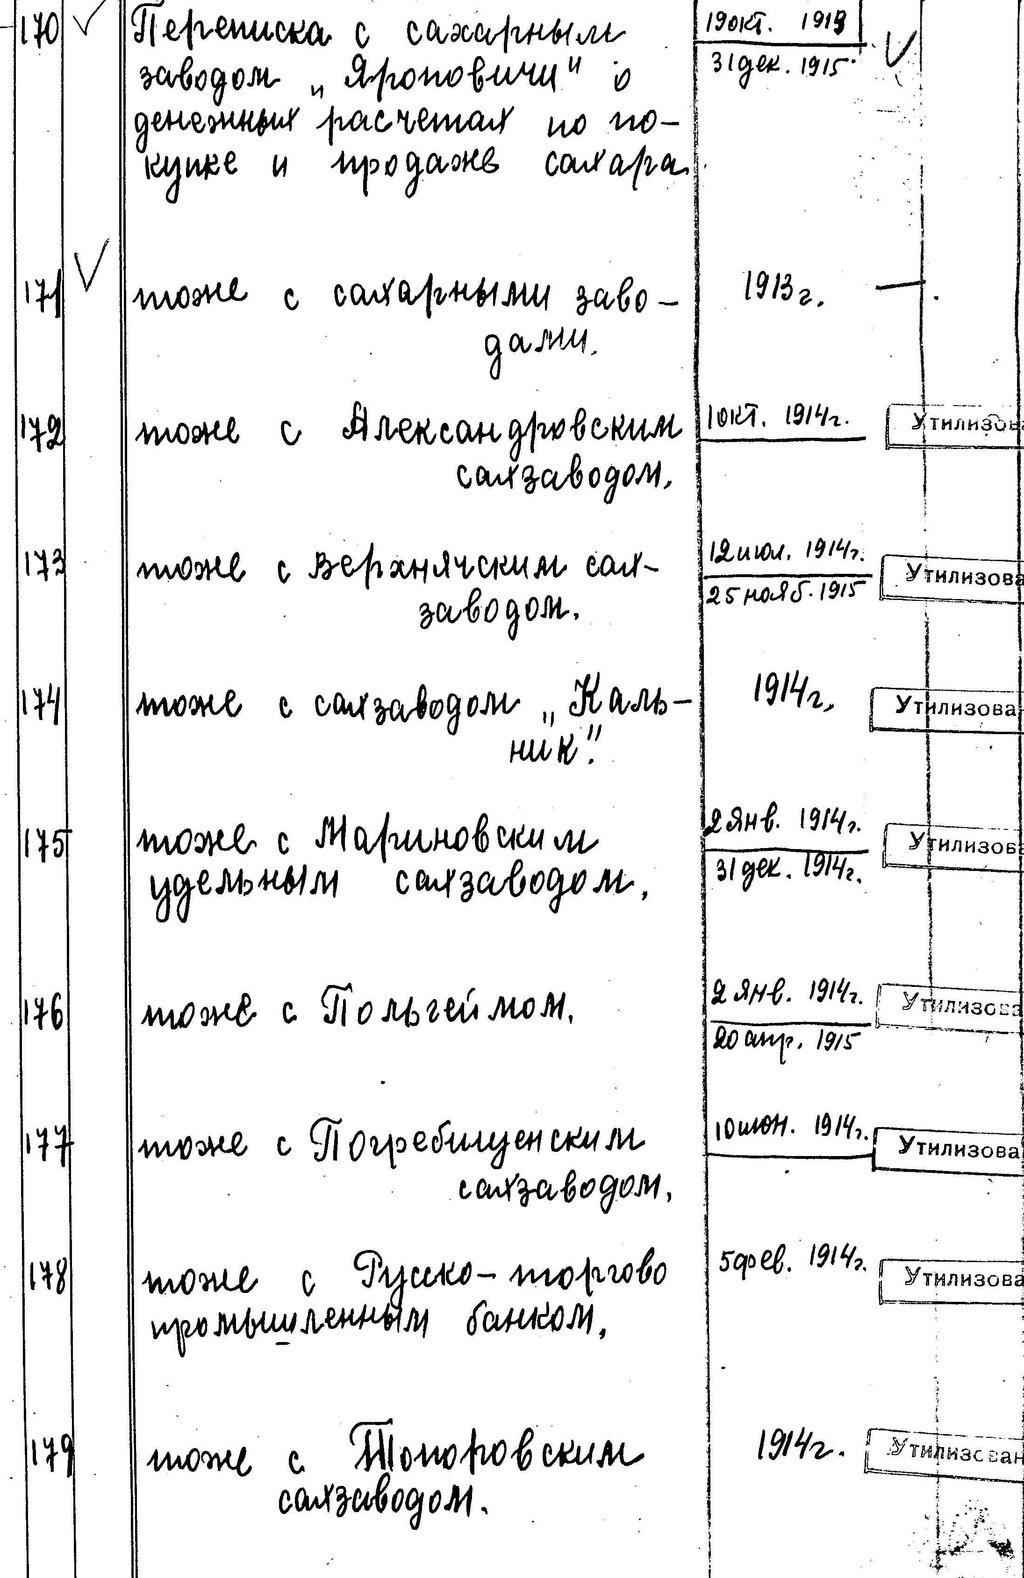 170 Переписка с сахарным 19 окт. 1913
заводом „Яроповичи“ о 31 дек. 1915
денежных расчетах по по-
купке и продаже сахара.
171 тоже с сахарными заво- 1913 г. —
дами.
172 тоже с Александровским 1 окт. 1914 г. Утилизова
сахзаводом.
173 тоже с Верхнячским сах- 12 июл. 1914 г. Утилизова
заводом. 25 нояб. 1915
174 тоже с сахзаводом „Каль- 1914 г. Утилизова
ник".
175 тоже с Мариновским 2 янв. 1914 г. Утилизова
удельным сахзаводом. 31 дек. 1914 г.
176 тоже с Польгеймом. 2 янв. 1914 г. Утилизова
20 апр. 1915
177 тоже с Погребищенским 10 июн. 1914 г. Утилизова
сахзаводом.
178 тоже с Русско-торгово 5 фев. 1914 г. Утилизова
промышленным банком.
179 тоже с Топоровским 1914 г. Утилизован
сахзаводом.